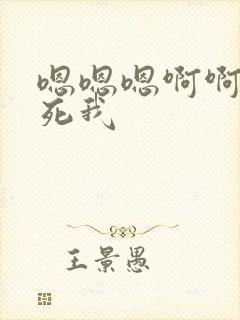 嗯嗯嗯啊啊
死我
王景愚